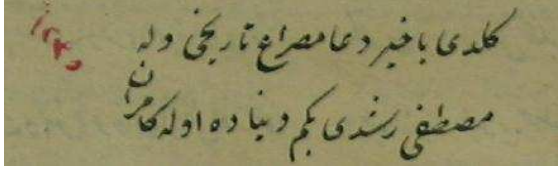 كلدى باخير دعا مصراع تاريخى وله
مصطفى رشدى بكم دنياده اوله كامران